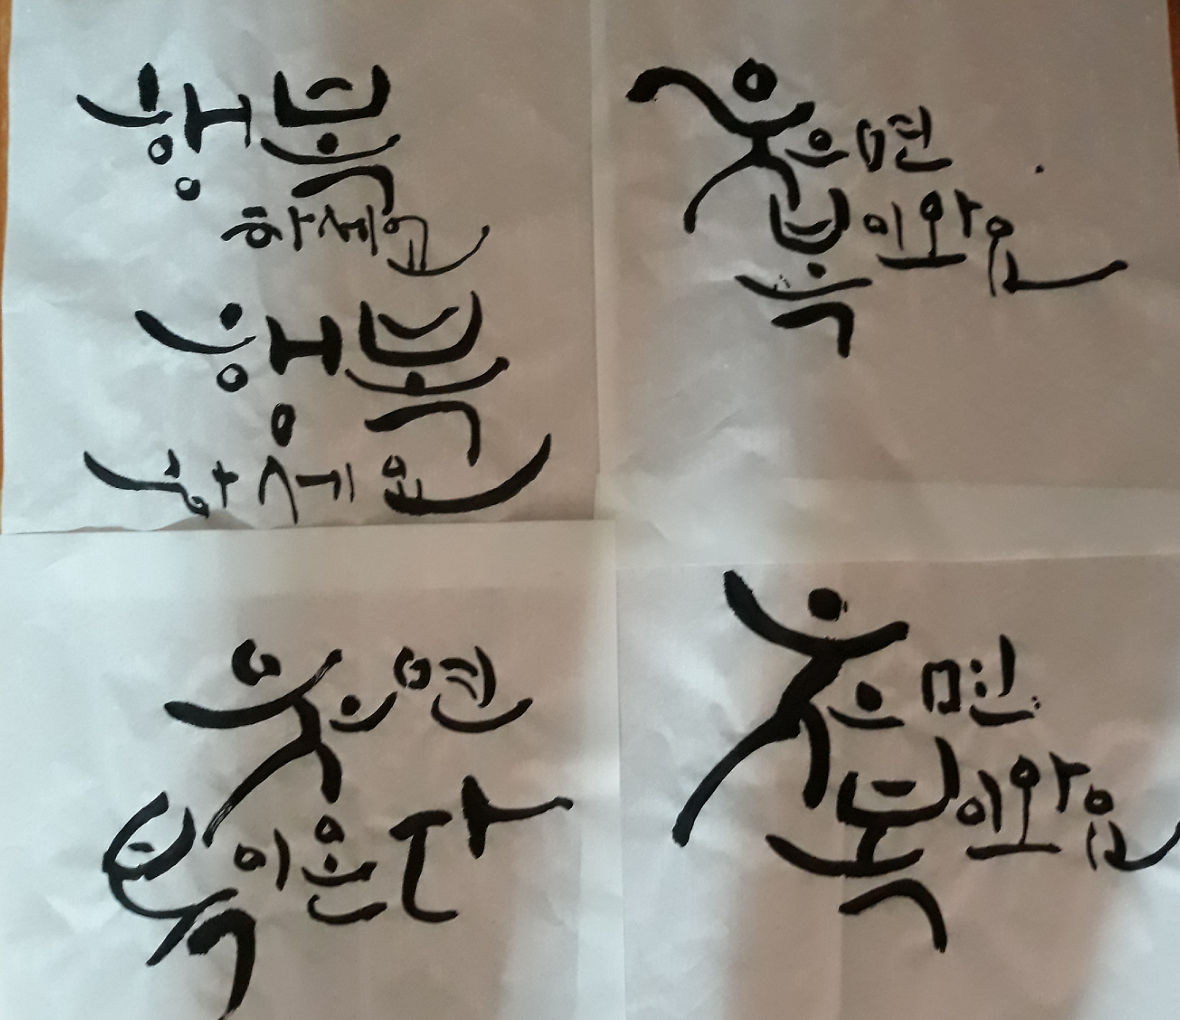 행복
하세요
행복
하세요
웃으면
복이와요
웃으면
복이온다
웃으면
복이와요